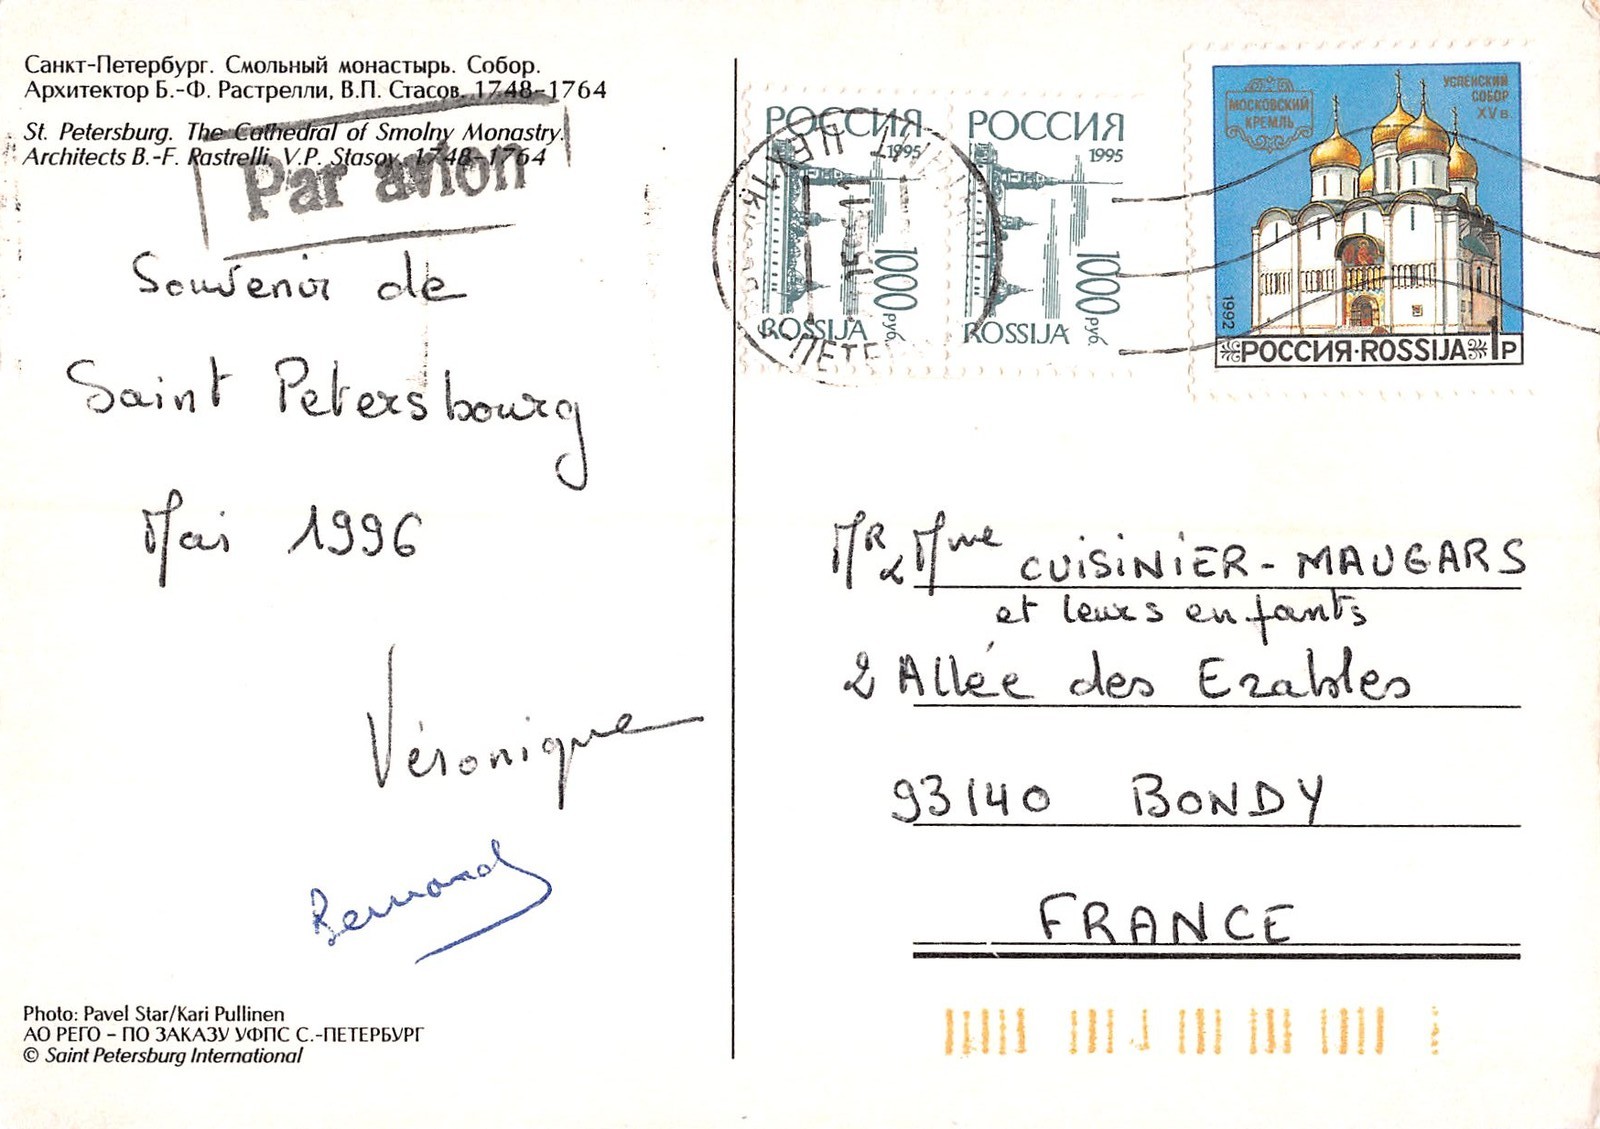 Санкт-Петербург. Смольный монастырь. Собор.
Архитектор Б.-Ф. Растрелли, В.П. Стасов. 1748-1764
St. Petersburg. The Cathedral of Smolny Monastry.
Architects B.-F. Rastrelli, V.P. Stasov. 1748-1764
Par avion
Souvenir de
Saint Petersbourg
Mai 1996
Véronique
Bernard
Photo: Pavel Star/Kari Pullinen
АО РЕГО – ПО ЗАКАЗУ УФПС С.-ПЕТЕРБУРГ
© Saint Petersburg International
РОССИЯ
1995
1000 руб.
ROSSIJA
РОССИЯ
1995
1000 руб.
ROSSIJA
МОСКОВСКИЙ
КРЕМЛЬ
УСПЕНСКИЙ
СОБОР
XV в.
1992
РОССИЯ·ROSSIJA 1Р
MR & Mme CUISINIER - MAUGARS
et leurs enfants
2 Allée des Erables
93140 BONDY
FRANCE